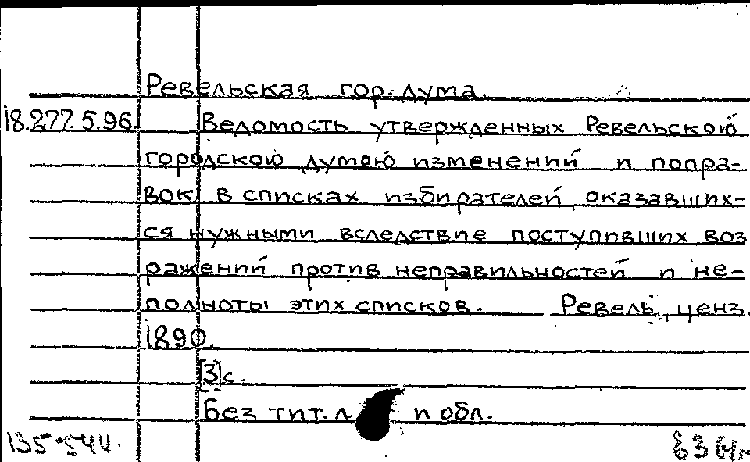 Ревельская гор. дума.
18.277.5.96 Ведомость утвержденных Ревельской
городской думою изменений и попра-
вок в списках избирателей, оказавших-
ся нужными вследствие поступивших воз
ражений против неправильностей и не-
полноты этих списков. Ревель, ценз.
1890.
[3]с.
Без тит. л и обл.